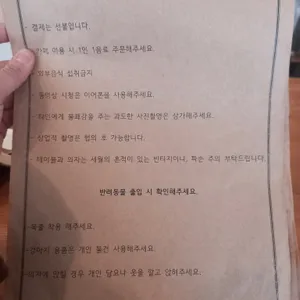 - 결제는 선불입니다.
카페 이용 시 1인 1음료 주문해주세요.
- 외부음식 섭취금지
- 동영상 시청은 이어폰을 사용해주세요.
- 타인에게 불쾌감을 주는 과도한 사진촬영은 삼가해주세요.
- 상업적 촬영은 협의 후 가능합니다.
- 테이블과 의자는 세월의 흔적이 있는 빈티지이니, 파손 주의 부탁드립니다.
반려동물 출입 시 확인해주세요.
- 목줄 착용 해주세요.
- 강아지 용품은 개인 물건 사용해주세요.
- 의자에 앉힐 경우 개인 담요나 옷을 깔고 앉혀주세요.